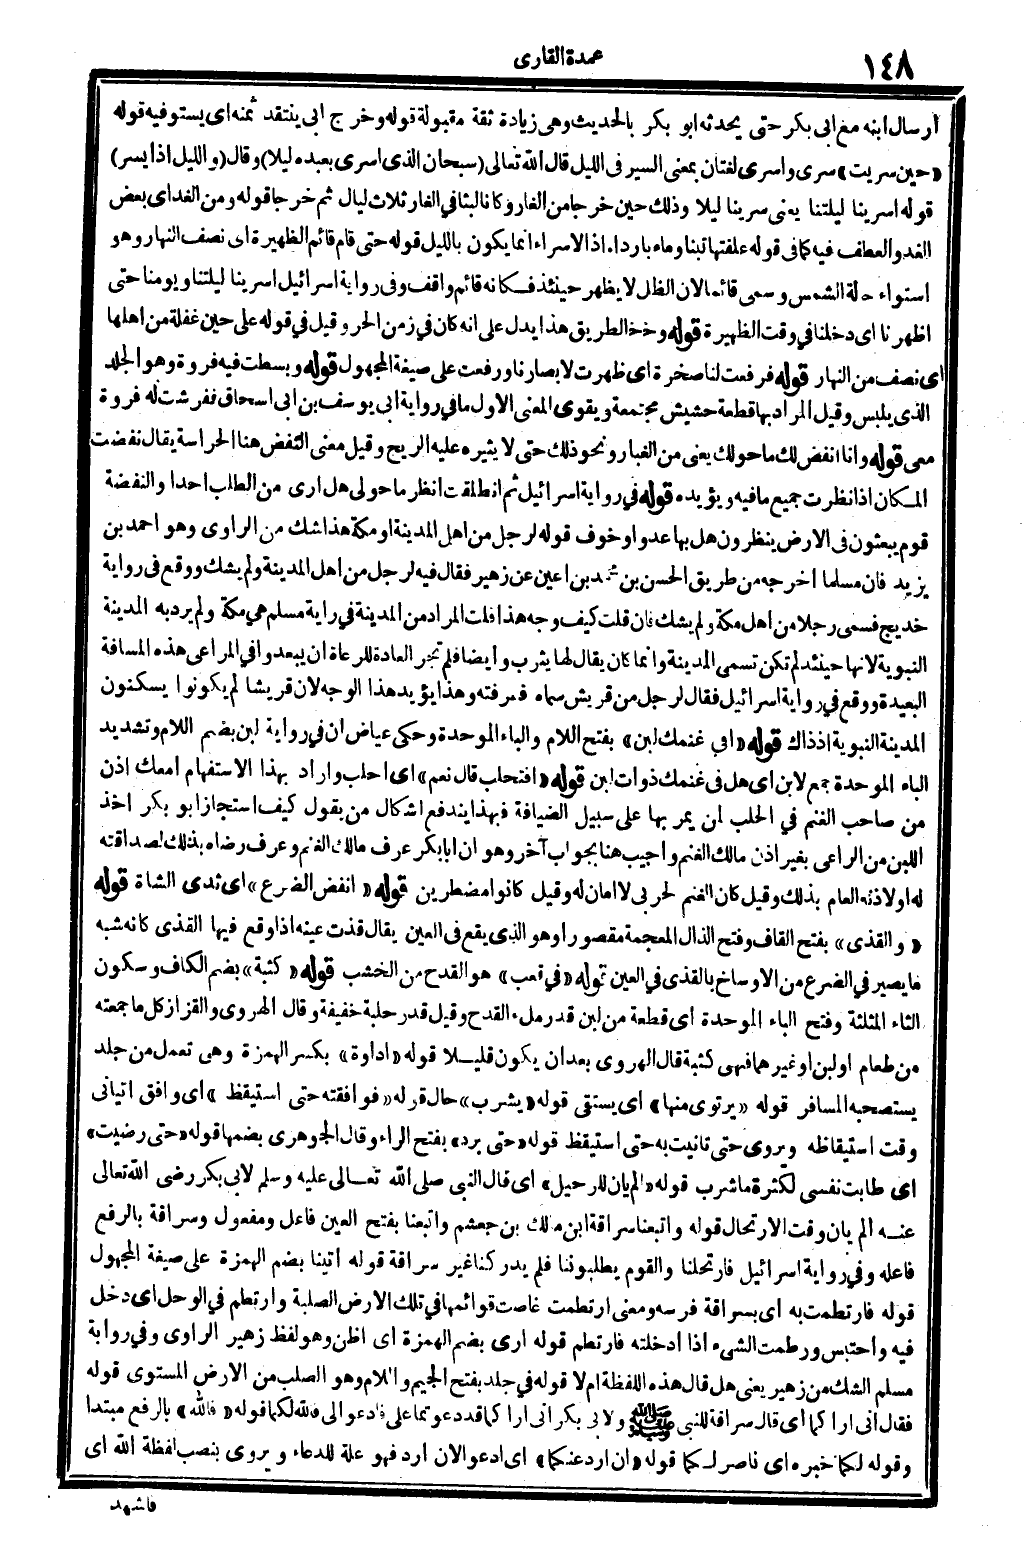 ١٤٨
عمدة القارى
ارسال ابنه مع ابى بكر حتى يحدثه ابو بكر بالحديث وهى زيادة ثقة مقبولة قوله وخرج ابى ينتقد ثمنه اى يستوفيه قوله
«حين سريت» سرى واسرى لغتان بمعنى السير فى الليل قال الله تعالى (سبحان الذى اسرى بعبده ليلا) وقال (والليل اذا يسر)
قوله اسرينا ليلتنا يعنى سرينا ليلا وذلك حين خرجا من الغار وكانا لبثا في الغار ثلاث ليال ثم خرجا قوله ومن الغد اى بعض
الغد والعطف فيه كما فى قوله علفتها تبنا وماء باردا. اذ الاسراء انما يكون بالليل قوله حتى قام قائم الظهيرة اى نصف النهار وهو
استواء حالة الشمس وسمى قائما لان الظل لا يظهر حينئذ فكانه قائم واقف وفى رواية اسرائيل اسرينا ليلتنا ويومنا حتى
اظهرنا اى دخلنا في وقت الظهيرة قوله وخخ الطريق هذا يدل على انه كان في زمن الحر وقيل في قوله على حين غفلة من اهلها
اى نصف من النهار قوله فرفعت لنا صخرة اى ظهرت لابصارنا ورفعت على صيغة المجهول قوله وبسطت فيه فروة وهو الجلد
الذى يلبس وقيل المراد بها قطعة حشيش مجتمعة ويقوى المعنى الاول ما في رواية ابى يوسف بن ابى اسحاق ففرشت له فروة
معى قوله وانا انفض لك ما حولك يعنى من الغبار ونحو ذلك حتى لا يثيره عليه الريح وقيل معنى النفض هنا الحراسة يقال نفضت
المكان اذا نظرت جميع ما فيه ويؤيده قوله في رواية اسرائيل ثم انطلقت انظر ما حولى هل ارى من الطلب احدا والنفضة
قوم يبعثون فى الارض ينظرون هل بها عدو او خوف قوله لرجل من اهل المدينة او مكة هذا شك من الراوى وهو احمد بن
يزيد فان مسلما اخرجه من طريق الحسن بن محمد بن اعين عن زهير فقال فيه لرجل من اهل المدينة ولم يشك ووقع فى رواية
خديج فسمى رجلا من اهل مكة ولم يشك فان قلت كيف وجه هذا قلت المراد من المدينة في راية مسلم هي مكة ولم يرد به المدينة
النبوية لانها حينئذ لم تكن تسمى المدينة وانما كان يقال لها يثرب وأيضا فلم تجر العادة للرعاة ان يبعدوا في المراعى هذه المسافة
البعيدة ووقع في رواية اسرائيل فقال لرجل من قريش سماه فعرفته وهذا يؤيد هذا الوجه لان قريشا لم يكونوا يسكنون
المدينة النبوية اذ ذاك قوله «افي غنمك لبن» بفتح اللام والباء الموحدة وحكى عياض ان في رواية لبن بضم اللام وتشديد
الباء الموحدة جمع لابن اى هل في غنمك ذوات لبن قوله «افتحلب قال نعم» اى احلب واراد بهذا الاستفهام امعك اذن
من صاحب الغنم في الحلب ان يمر بها على سبيل الضيافة فبهذا يندفع اشكال من يقول كيف استجاز ابو بكر اخذ
اللبن من الراعى بغير اذن مالك الغنم واجيب هنا بجواب آخر وهو ان ابابكر عرف مالك الغنم وعرف رضاه بذلك لصداقته
له او لاذنه العام بذلك وقيل كان الغنم لحربى لا امان له وقيل كانوا مضطرين قوله «انفض الضرع» اى ثدى الشاة قوله
«والقذى» بفتح القاف وفتح الذال المعجمة مقصورا وهو الذى يقع فى العين يقال قذت عينه اذا وقع فيها القذى كانه شبه
ما يصير في الضرع من الاوساخ بالقذى في العين قوله «في قعب» هو القدح من الخشب قوله «كثبة» بضم الكاف وسكون
الثاء المثلثة وفتح الباء الموحدة اى قطعة من لبن قدر ملء القدح وقيل قدر حلبة خفيفة وقال الهروى والقزاز كل ما جمعته
من طعام او لبن او غيرهما فهى كثبة قال الهروى بعد ان يكون قليلا قوله «اداوة» بكسر الهمزة وهى تعمل من جلد
يستصحبه المسافر قوله «يرتوى منها» اى يستقى قوله «يشرب» حال قوله «فوافقته حتى استيقظ» اى وافق اتيانى
وقت استيقاظه ويروى حتى تانيت به حتى استيقظ قوله «حتى برد» بفتح الراء وقال الجوهرى بضمها قوله «حتى رضيت»
اى طابت نفسى لكثرة ما شرب قوله «الم يان للرحيل» اى قال النبى صلى الله تعالى عليه وسلم لابى بكر رضى الله تعالى
عنه الم يان وقت الارتحال قوله واتبعنا سراقة ابن مالك بن جعشم واتبعنا بفتح العين فاعل ومفعول وسراقة بالرفع
فاعله وفي رواية اسرائيل فارتحلنا والقوم يطلبوننا فلم يدركنا غير سراقة قوله أتينا بضم الهمزة على صيغة المجهول
قوله فارتطمت به اى بسراقة فرسه ومعنى ارتطمت غاصت قوائمها في تلك الارض الصلبة وارتطم في الوحل اى دخل
فيه واحتبس ورطمت الشىء اذا أدخلته فارتطم قوله ارى بضم الهمزة اى اظن وهو لفظ زهير الراوى وفي رواية
مسلم الشك من زهير يعنى هل قال هذه اللفظة ام لا قوله في جلد بفتح الجيم واللام وهو الصلب من الارض المستوى قوله
فقال انى اراكما أى قال سراقة للنبى ﷺ ولابى بكر انى اراكما قد دعوتما على فادعوا لى فالله لكما قوله «فالله» بالرفع مبتدا
وقوله لكما خبره اى ناصر لكما قوله «ان اردعنكما» اى ادعو الان ارد فهو علة للدعاء ويروى بنصب لفظة الله اى
فاشهد